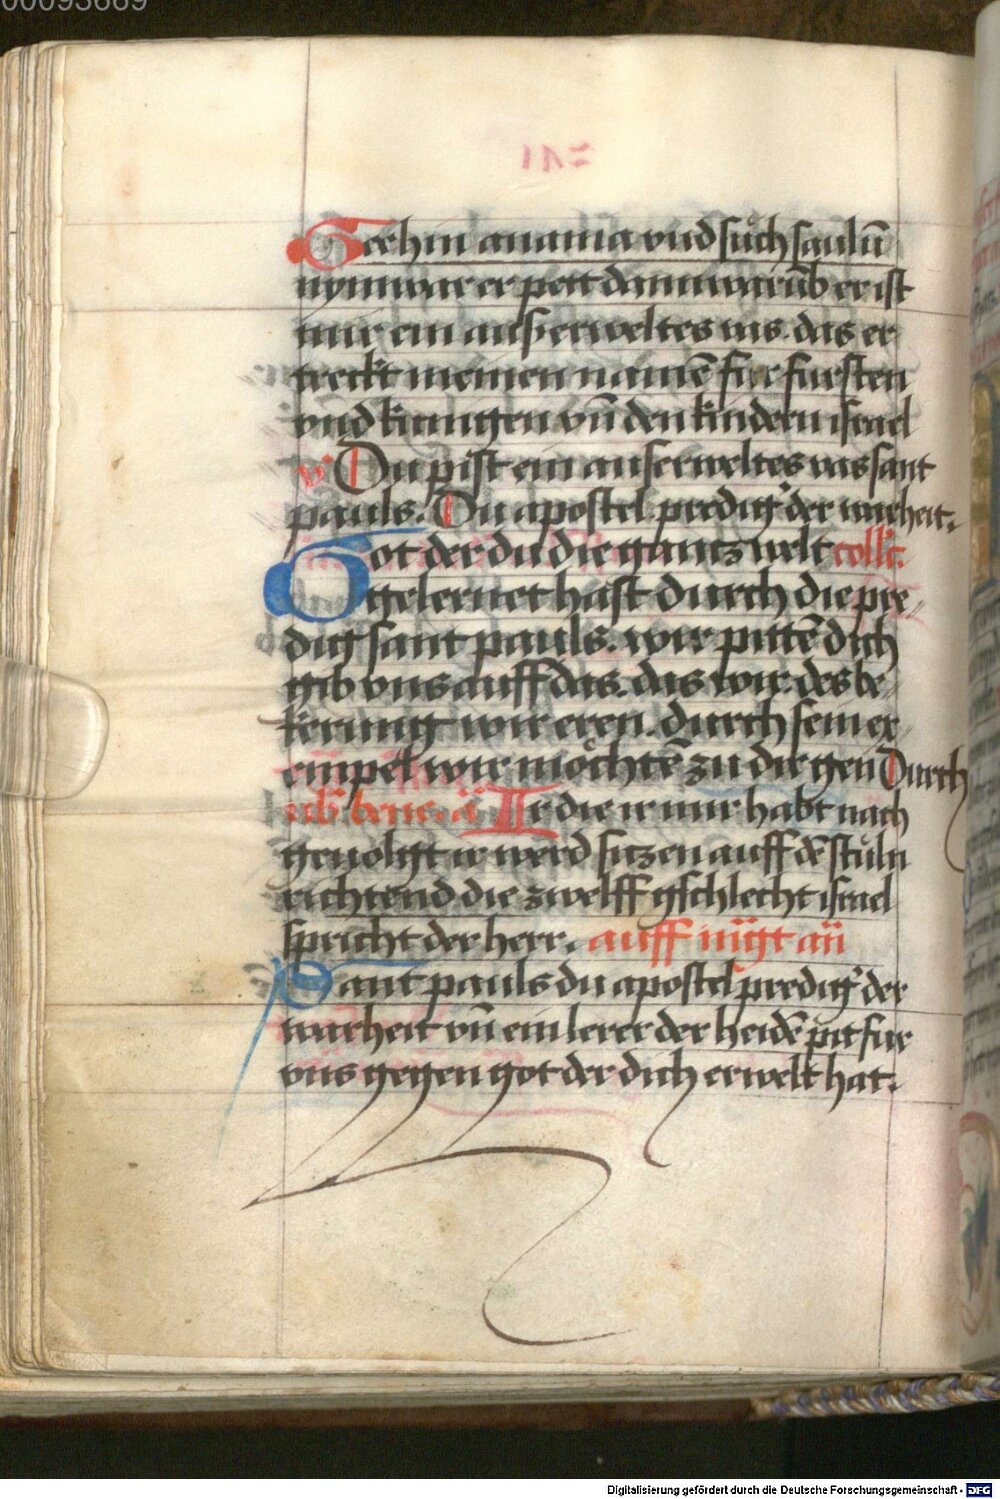 00093669
Gee hin anania vnd sůch saulū
nym war er pett dann warūb er ist
mir ein auszerweltes vas. das er
treckt meinen namē fur fursten
vnd kunigen vn̄ den kindern israel
v Du pist ein auserweltes vas sant
pauls. Du apostel predig' der warheit.
Got der du die gantz welt coll'c.
gelernet hast durch die pre„
dig sant pauls. wir pittē dich
gib vns auff das. das wir des be„
kerung wir eren. durch sein ex„
empel wir möchtē zu dir gen Durch
vb' bene. ā Ir die ir mir habt nach
geuolgt ir werd sitzen auff dē stůln
richtend die zwelff gschlecht israel
spricht der herr. auff m̄gt an̄
Sant pauls du apostel predig' der
warheit vn̄ ein lerer der heidē pit fur
vns gegen got der dich erwelt hat.
Digitalisierung gefördert durch die Deutsche Forschungsgemeinschaft - DFG